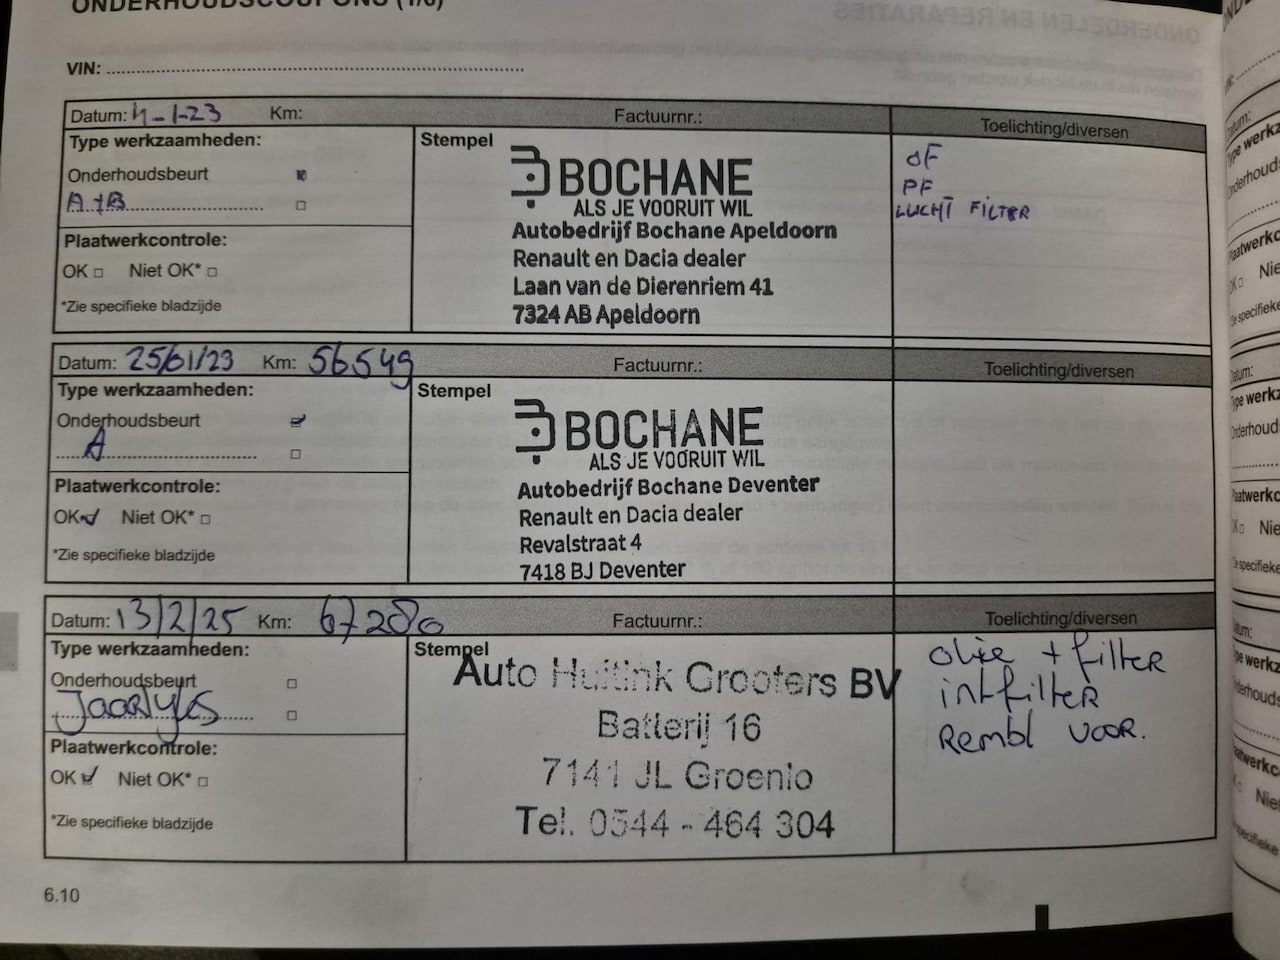 ONDERHOUDSCOUPONS (1/6)
VIN:
Datum: 4-1-23 Km: Factuurnr.: Toelichting/diversen
Type werkzaamheden:
Onderhoudsbeurt
A+B
Plaatwerkcontrole:
OK Niet OK*
*Zie specifieke bladzijde
Stempel
BOCHANE
ALS JE VOORUIT WIL
Autobedrijf Bochane Apeldoorn
Renault en Dacia dealer
Laan van de Dierenriem 41
7324 AB Apeldoorn
OF
PF
LUCHT FILTER
Datum: 25/01/23 Km: 56549 Factuurnr.: Toelichting/diversen
Type werkzaamheden:
Onderhoudsbeurt
A
Plaatwerkcontrole:
OK Niet OK*
*Zie specifieke bladzijde
Stempel
BOCHANE
ALS JE VOORUIT WIL
Autobedrijf Bochane Deventer
Renault en Dacia dealer
Revalstraat 4
7418 BJ Deventer
Datum: 13/2/25 Km: 67280 Factuurnr.: Toelichting/diversen
Type werkzaamheden:
Onderhoudsbeurt
Jaarlyks
Plaatwerkcontrole:
OK Niet OK*
*Zie specifieke bladzijde
Stempel
Auto Huitink Grooters BV
Batterij 16
7141 JL Groenlo
Tel. 0544 - 464 304
olie + filter
intfilter
Rembl voor.
6.10